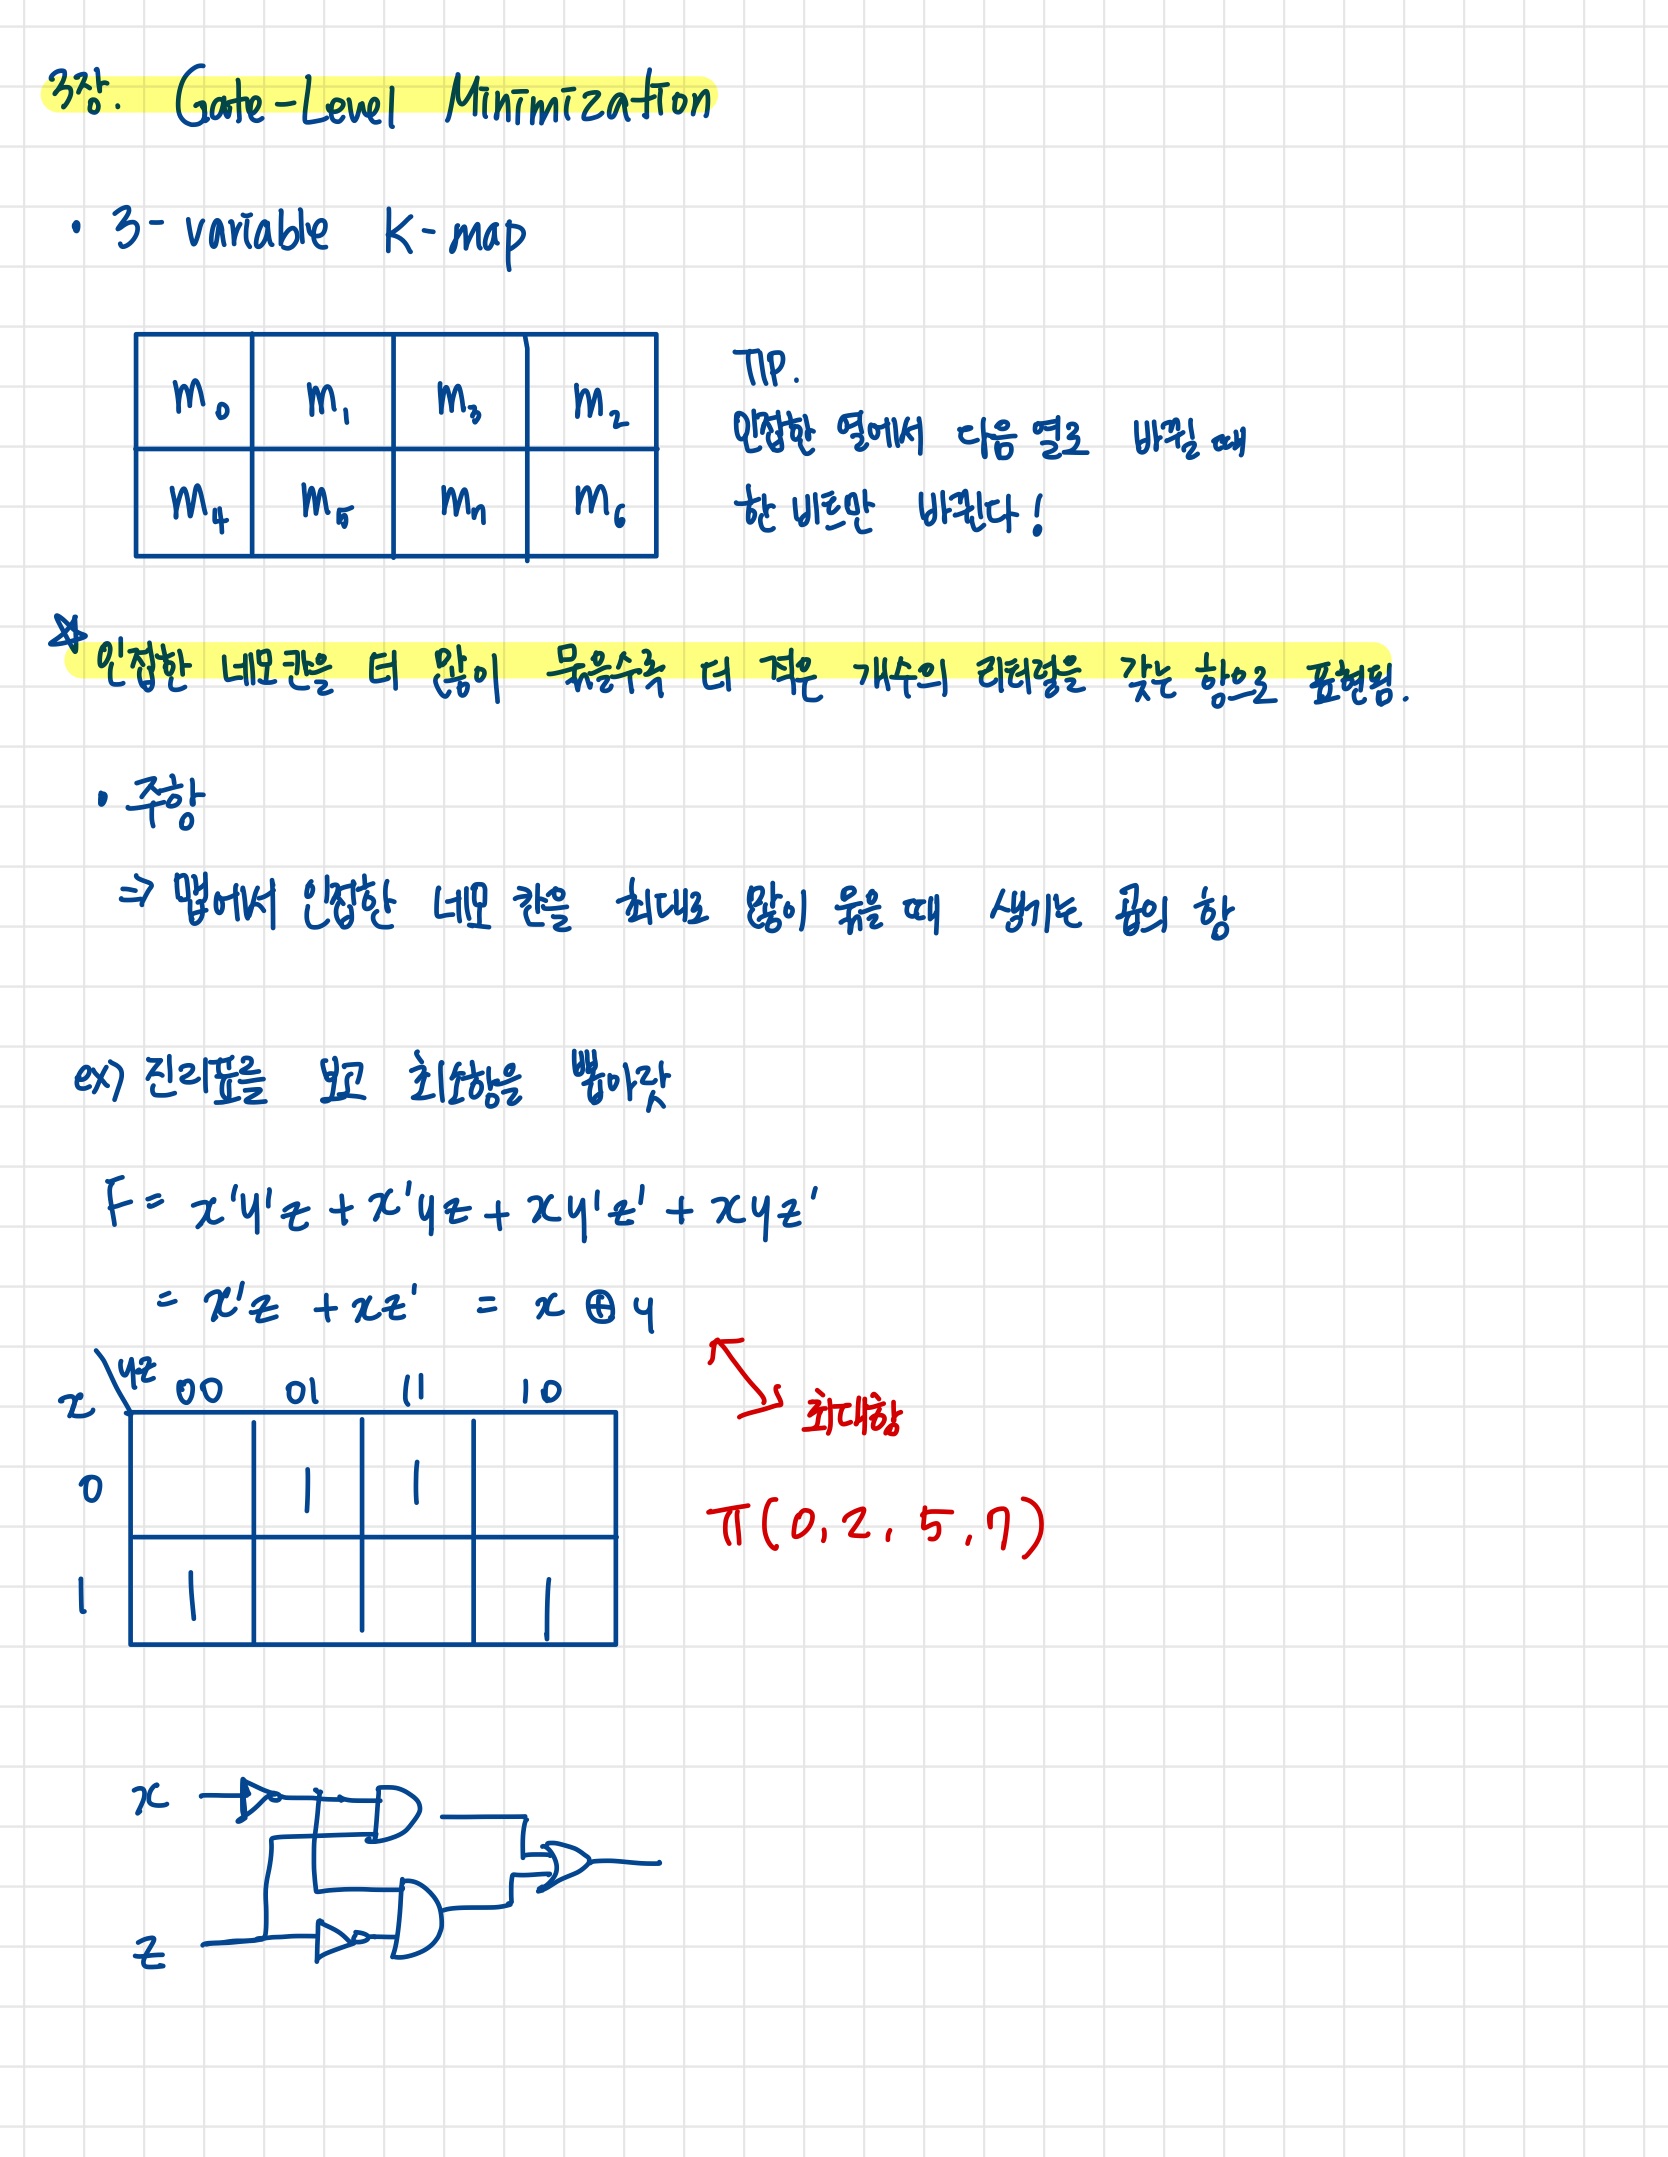 3장. Gate-Level Minimization
• 3-variable K-map
m₀ m₁ m₃ m₂
m₄ m₅ m₇ m₆
TIP.
인접한 열에서 다음 열로 바뀔 때
한 비트만 바뀐다!
☆ 인접한 네모칸을 더 많이 묶을수록 더 적은 개수의 리터럴을 갖는 항으로 표현됨.
• 주항
⇒ 맵에서 인접한 네모 칸을 최대로 많이 묶을 때 생기는 곱의 항
ex) 진리표를 보고 최소항을 뽑아랏
F = x'y'z + x'yz + xy'z' + xyz'
= x'z + xz' = x ⊕ y
최대항
x \ yz 00 01 11 10
0 1 1
1 1 1
π(0, 2, 5, 7)
x
z